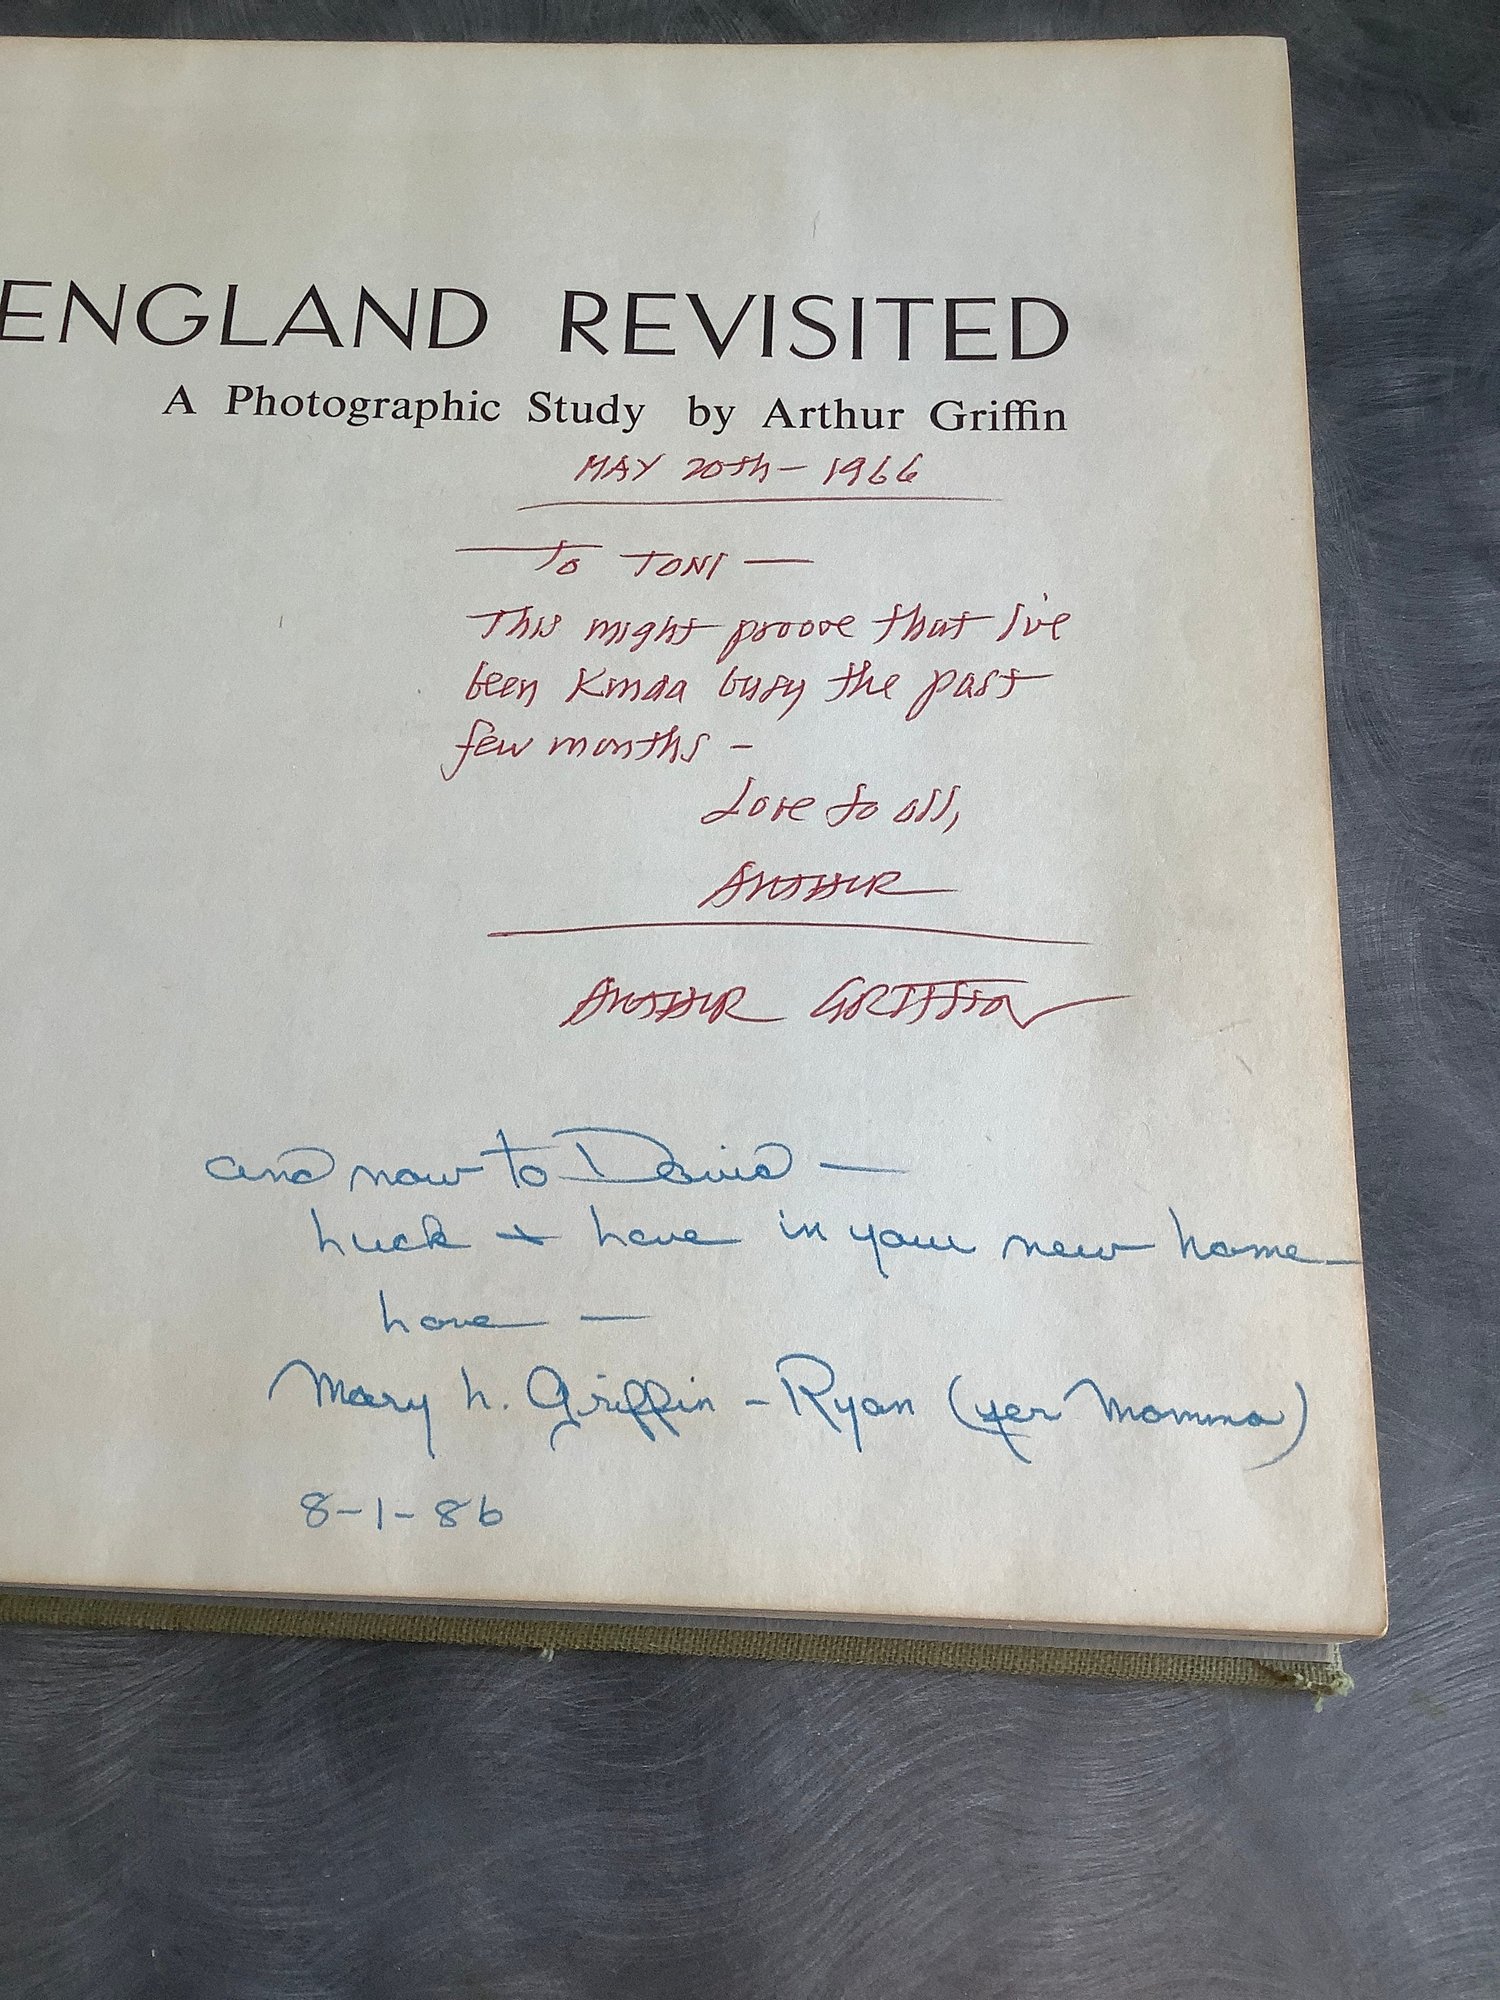 ENGLAND REVISITED
A Photographic Study by Arthur Griffin
MAY 20th - 1966
To TONI —
This might proove that I've
been Kinda busy the past
few months -
Love to all,
ARTHUR
ARTHUR GRIFFIN
and now to David —
Luck + Love in your new home
Love —
Mary L. Griffin - Ryan (yer Momma)
8-1-86